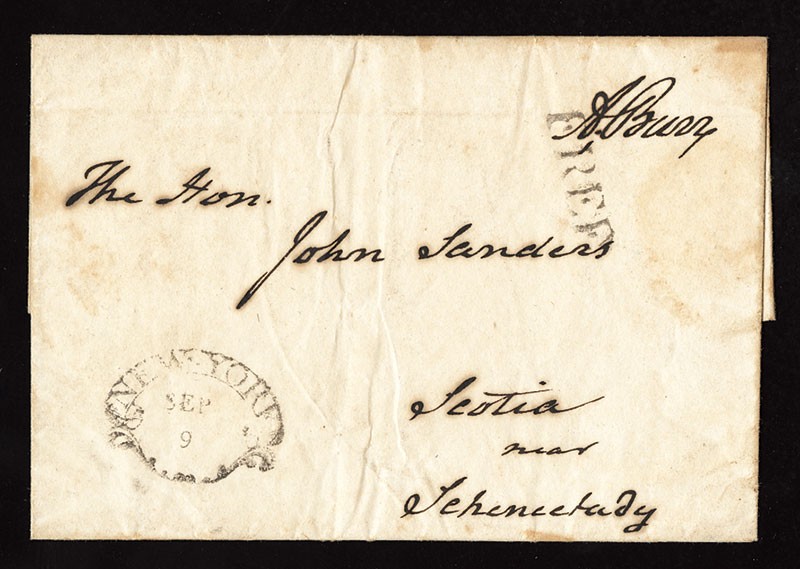 A. Burr
FREE
The Hon.
John Sanders
NEW-YORK
SEP
9
Scotia
near
Schenectady